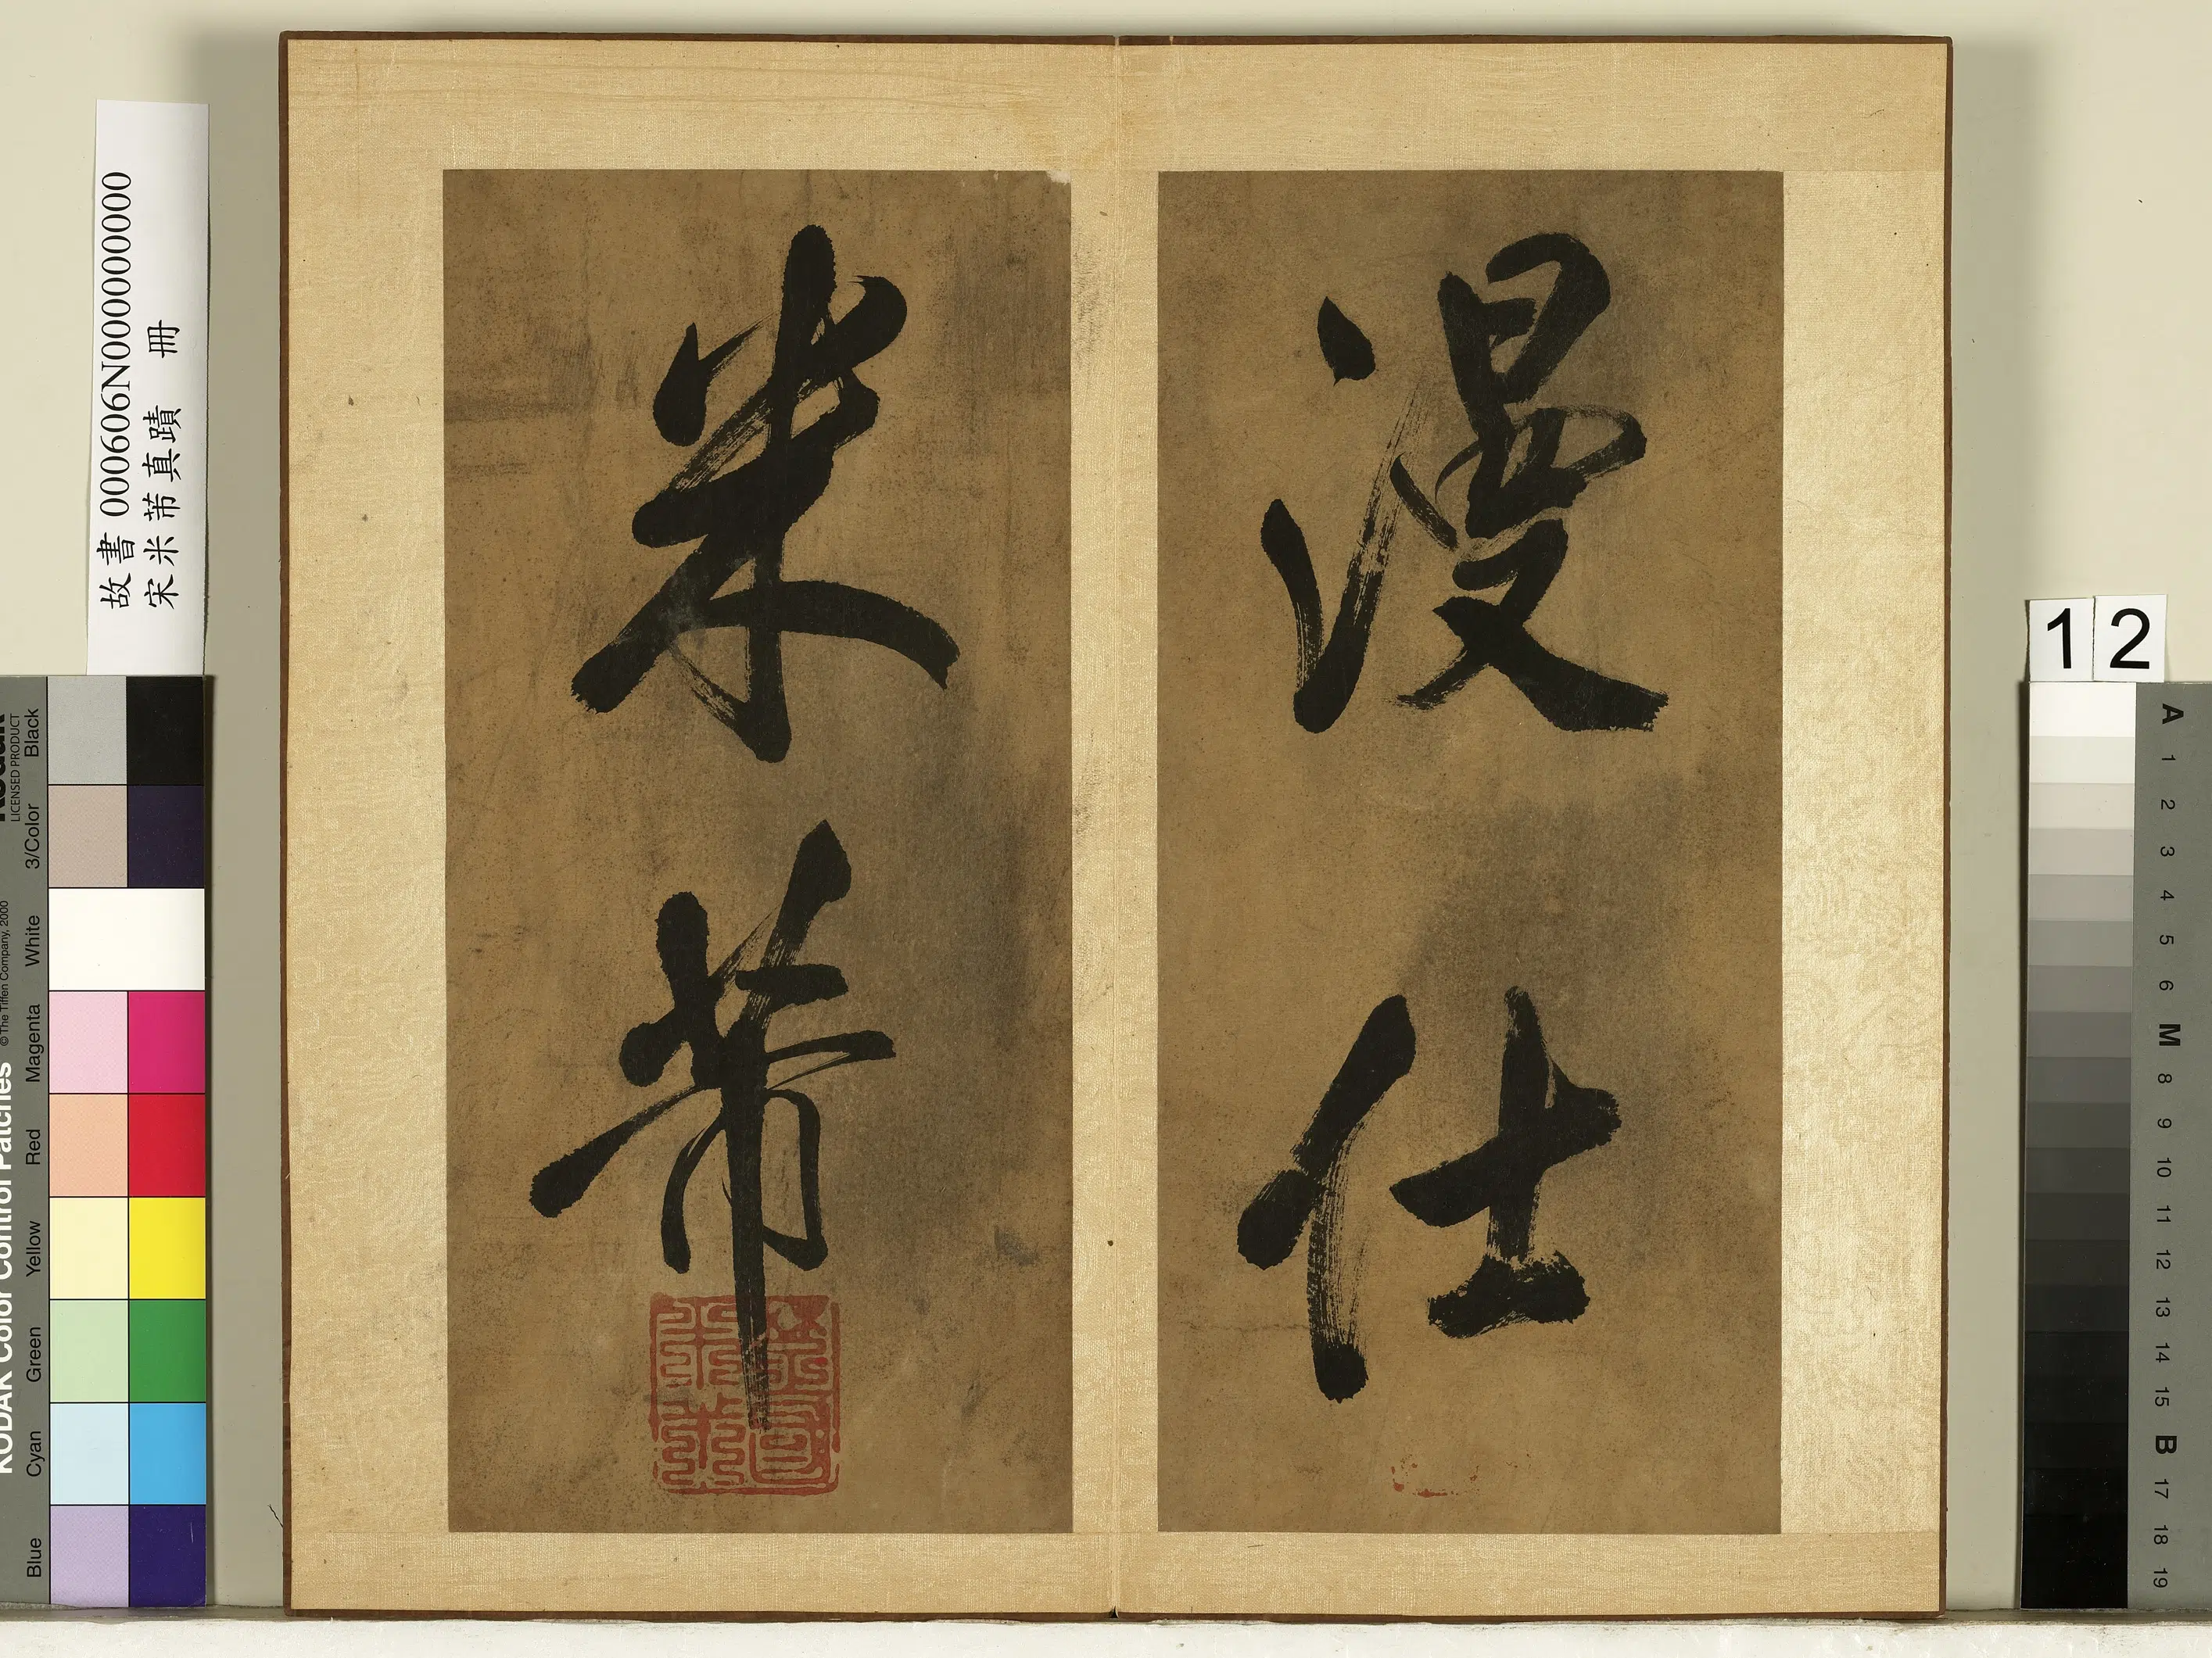 漫仕
米芾
故書 000606N000000000
宋米芾真蹟 冊
12
LICENSED PRODUCT
Black
3/Color
White
Magenta
Red
Yellow
Green
Cyan
Blue
KODAK Color Control Patches
© The Tiffen Company, 2000
A
1
2
3
4
5
6
M
8
9
10
11
12
13
14
15
B
17
18
19